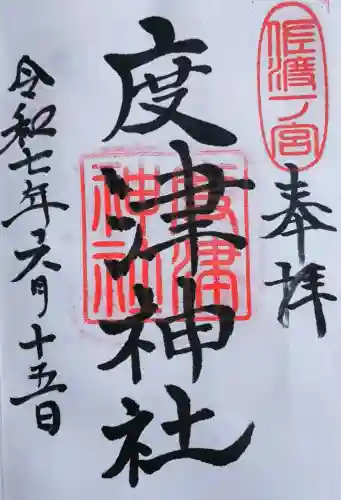 佐渡一宮
奉拝
度津神社
度津神社
令和七年六月十五日